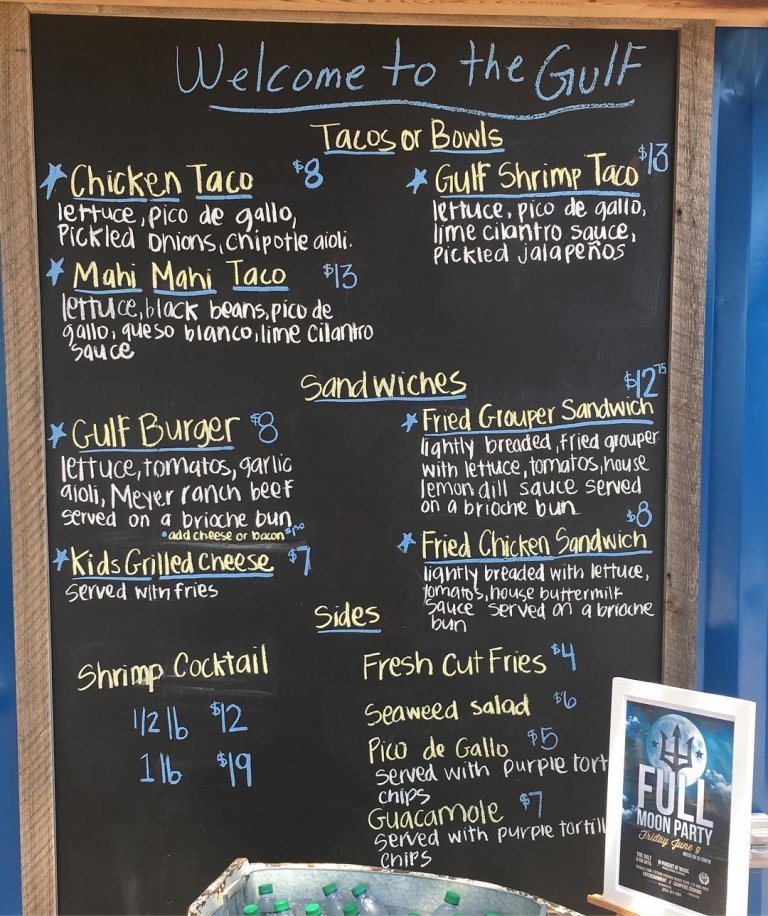 Welcome to the Gulf
Tacos or Bowls
Chicken Taco $8
lettuce, pico de gallo,
Pickled Onions, Chipotle aioli.
Mahi Mahi Taco $13
lettuce, black beans, pico de
gallo, queso blanco, lime cilantro
sauce
Gulf Shrimp Taco $13
lettuce, pico de gallo,
lime cilantro sauce,
Pickled jalapeños
Sandwiches
Gulf Burger $8
lettuce, tomatos, garlic
aioli, Meyer ranch beef
served on a brioche bun
•add cheese or bacon
Kids Grilled Cheese $7
served with fries
$12.75
Fried Grouper Sandwich
lightly breaded, fried grouper
with lettuce, tomatos, house
lemon dill sauce served
on a brioche bun
$8
Fried Chicken Sandwich
lightly breaded with lettuce,
tomatos, house buttermilk
sauce served on a brioche
bun
Sides
Shrimp Cocktail
1/2 lb $12
1 lb $19
Fresh Cut Fries $4
Seaweed Salad $6
Pico de Gallo $5
served with purple tort
chips
Guacamole $7
served with purple tortill
chips
FULL
MOON PARTY
Friday June 9
THE GULF